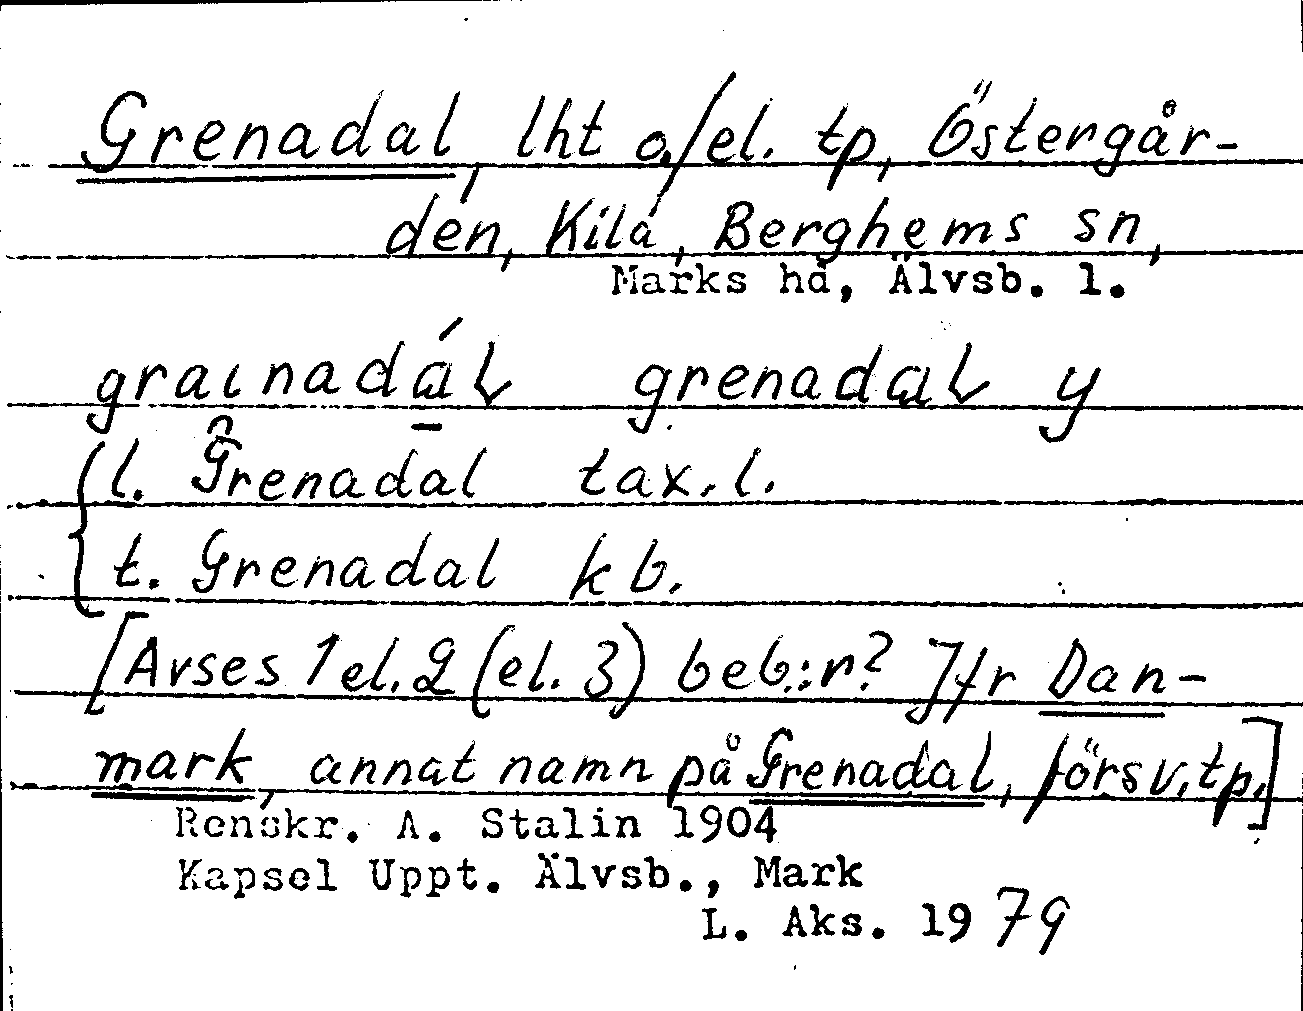 Grenadal, lht o./el. tp, Östergår-
den, Kila, Berghems sn,
Marks hd, Älvsb. l.
graınadál grenadal y
l. Grenadal tax. l.
t. Grenadal kb.
[Avses 1 el. 2 (el. 3) beb.:r? Jfr Dan-
mark, annat namn på Grenadal, försv. tp.]
Renskr. A. Stalin 1904
Kapsel Uppt. Älvsb., Mark
L. Aks. 1979